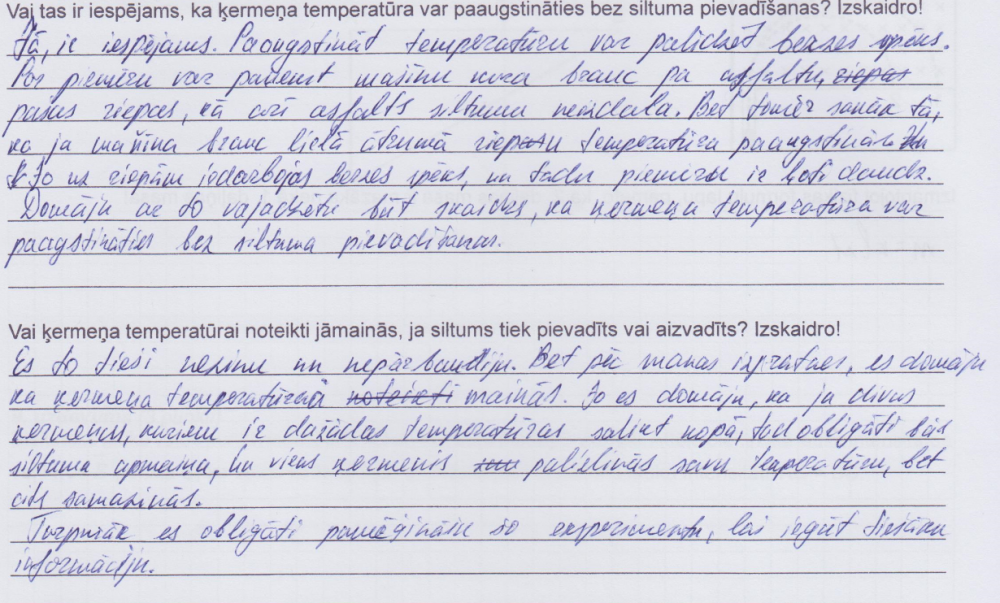 Vai tas ir iespējams, ka ķermeņa temperatūra var paaugstināties bez siltuma pievadīšanas? Izskaidro!
Jā, ir iespējams. Paaugstināt temperatūru var palīdzēt berzes spēks.
Par piemēru var paņemt mašīnu kura brauc pa asfaltu, riepas
pašas riepas, kā arī asfalts siltumu neizdala. Bet tomēr sanāk tā,
ka ja mašīna brauc lielā ātrumā riepu temperatūra paaugstinās
Jo uz riepām iedarbojas berzes spēks, un tādu piemēru ir ļoti daudz.
Domāju ar to vajadzētu būt skaidrs, ka ķermeņa temperatūra var
paaugstināties bez siltuma pievadīšanas.
Vai ķermeņa temperatūrai noteikti jāmainās, ja siltums tiek pievadīts vai aizvadīts? Izskaidro!
Es to tieši nezinu un nepārbaudīju. Bet pēc manas izpratnes, es domāju
ka ķermeņa temperatūra noteikti mainās. Jo es domāju, ka ja divus
ķermeņus, kuriem ir dažādas temperatūras saliet kopā, tad obligāti būs
siltuma apmaiņa, ku viens ķermenis palielinās savu temperatūru, bet
cits samazinās.
Turpmāk es obligāti pamēģināšu šo eksperimentu, lai iegūt tiešāku
informāciju.